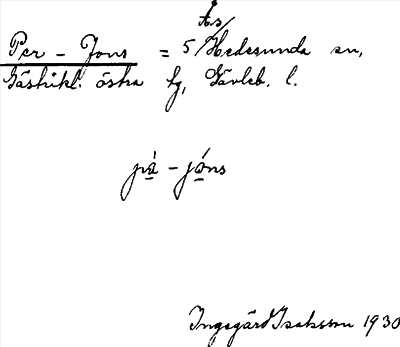 Ås
Per - Jons = 5/Hedesunda sn,
Gästrikl. östra tg, Gävleb. l.
pà - jóns
Ingegärd Isaksson 1930